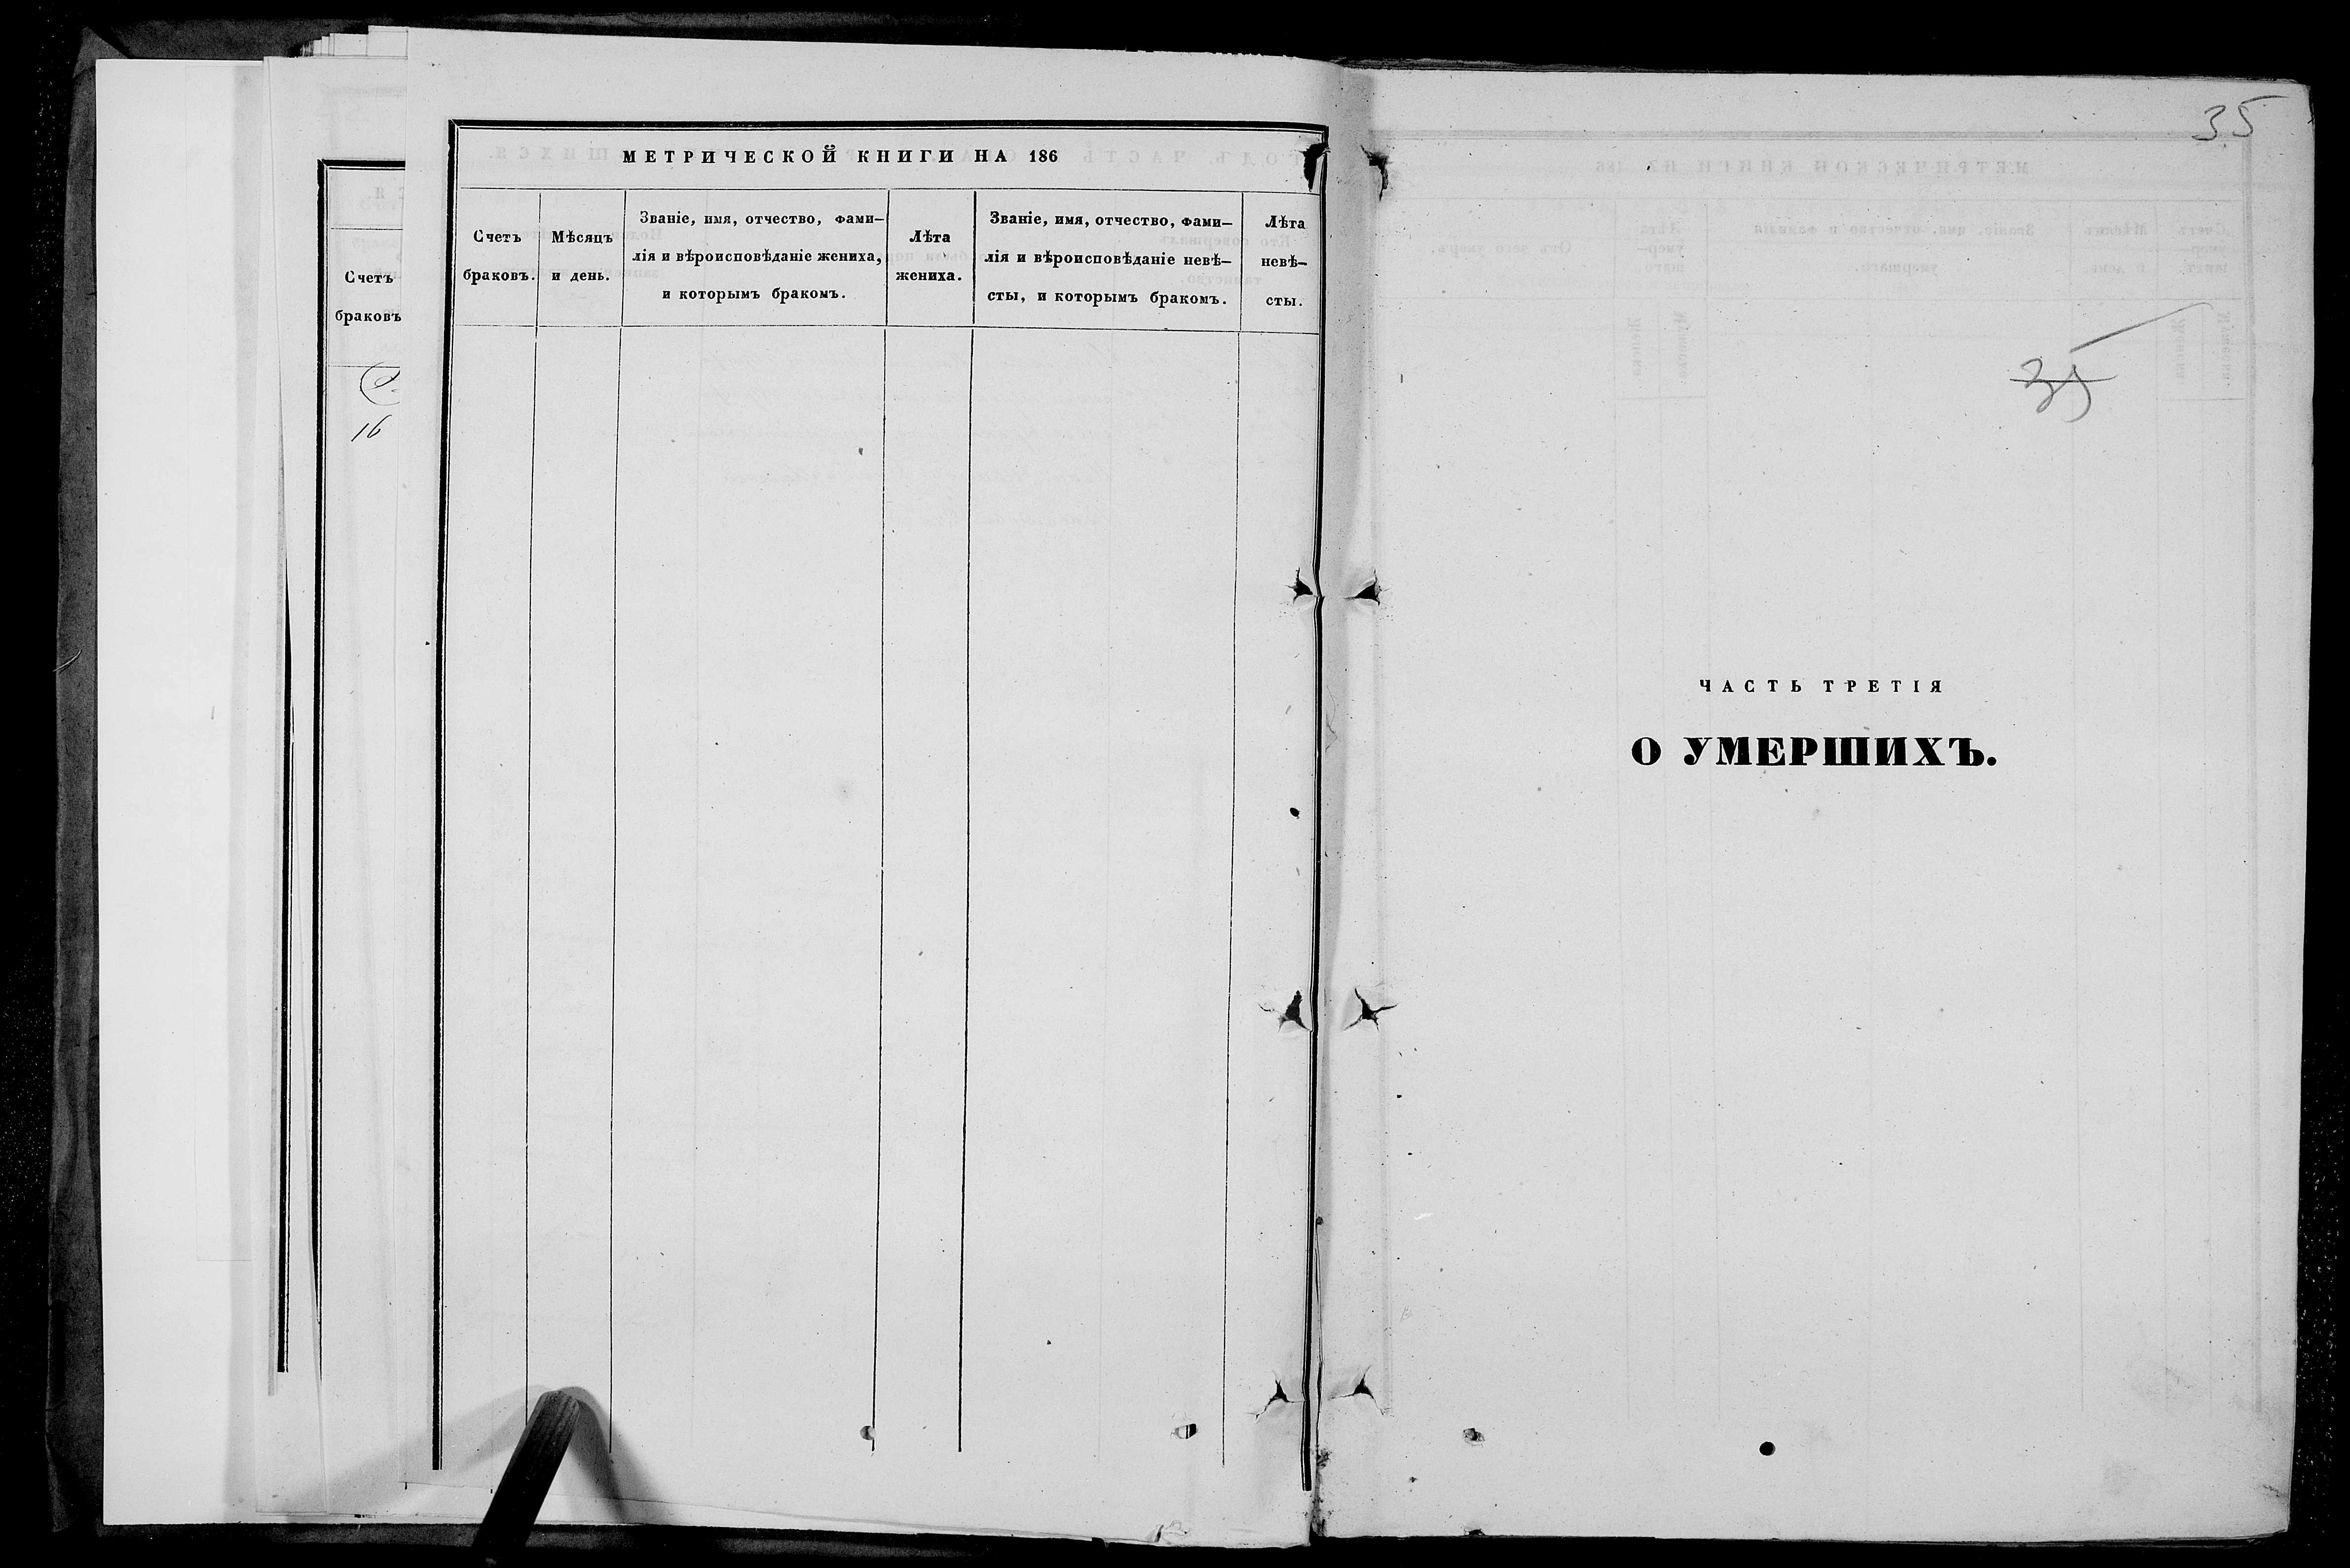 Счетъ
браковъ
16
МЕТРИЧЕСКОЙ КНИГИ НА 186
Счетъ
браковъ.
Мѣсяцъ
и день.
Званіе, имя, отчество, фами–
лія и вѣроисповѣданіе жениха,
и которымъ бракомъ.
Лѣта
жениха.
Званіе, имя, отчество, фами–
лія и вѣроисповѣданіе невѣ–
сты, и которымъ бракомъ.
Лѣта
невѣ–
сты.
35
35
ЧАСТЬ ТРЕТІЯ
О УМЕРШИХЪ.